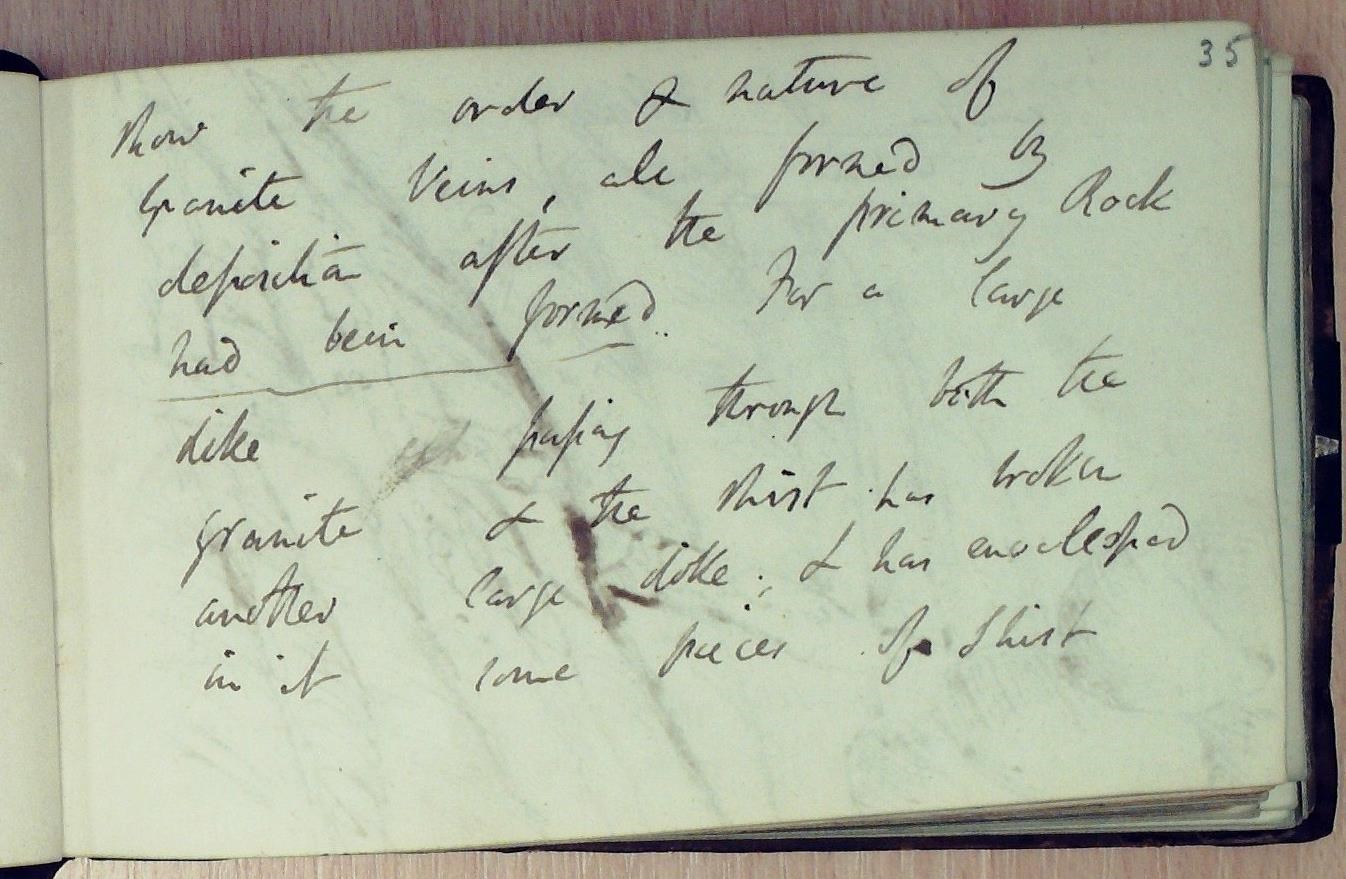 35
Show the order & nature of
Granite Veins, all formed by
deposition after the primary Rock
had been formed. For a large
dike passing through both the
granite & the Shist has broken
another large dike; & has enveloped
in it some pieces of Shist